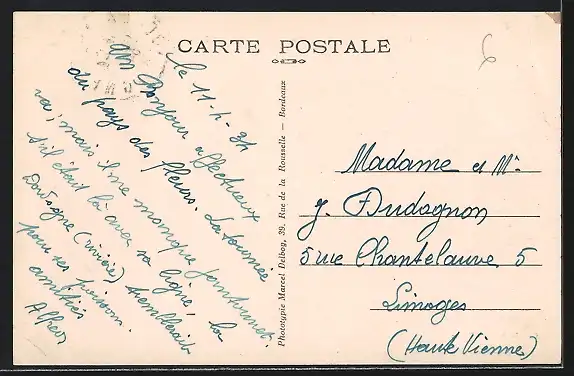 CARTE POSTALE
le 11-4-34
un Bonjour affectueux
du pays des fleurs. La tournée
va; mais il me manque
s'il était là avec sa ligne, la
Dordogne (rivière) tremblerait
pour ses poissons.
amitiés
Alfred
Phototypie Marcel Delboy, 39, Rue de la Rousselle — Bordeaux
Madame et Mr
J. Dudognon
5 rue Chantelauve 5
Limoges
(Haute Vienne)